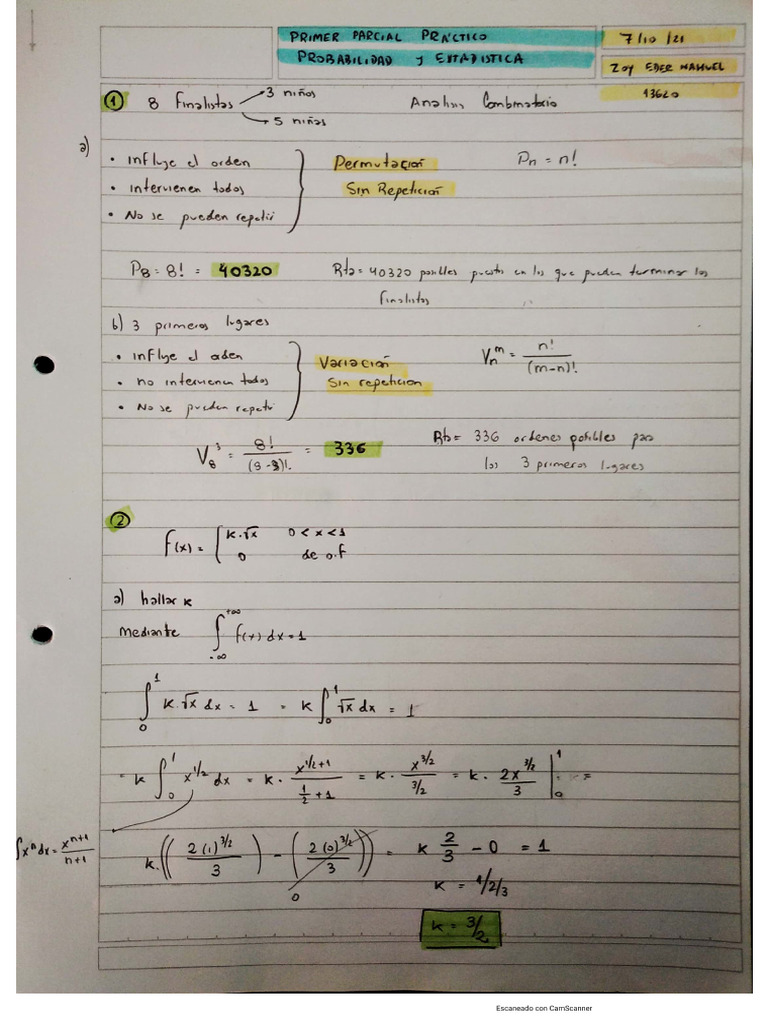 PRIMER PARCIAL PRÁCTICO
7/10/21
PROBABILIDAD y ESTADISTICA
ZOY EDER NAHUEL
13620
① 8 Finalistas → 3 niños
→ 5 niñas
Analisis Combinatorio
a)
• influye el orden
• intervienen todos
• No se pueden repetir
Permutación
Sin Repetición
Pn = n!
P8 = 8! = 40320
Rta = 40320 posibles puestos en los que pueden terminar los
finalistas
b) 3 primeros lugares
• influye el orden
• no intervienen todos
• No se pueden repetir
Variación
Sin repeticion
Vn^m = n!/(m-n)!
V8^3 = 8!/(8-3)! = 336
Rta = 336 ordenes posibles para
los 3 primeros lugares
②
f(x) = { k.√x 0 < x < 1
0 de o.f
a) hallar k
mediante ∫_{-∞}^{+∞} f(x) dx = 1
∫_0^1 k.√x dx = 1 = k ∫_0^1 √x dx = 1
= k ∫_0^1 x^{1/2} dx = k. x^{1/2+1}/(1/2+1) = k. x^{3/2}/(3/2) = k. 2x^{3/2}/3 |_0^1 =
∫x^n dx = x^{n+1}/(n+1)
k.((2(1)^{3/2}/3) - (2(0)^{3/2}/3)) = k 2/3 - 0 = 1
0
k = 1/2/3
k = 3/2
Escaneado con CamScanner